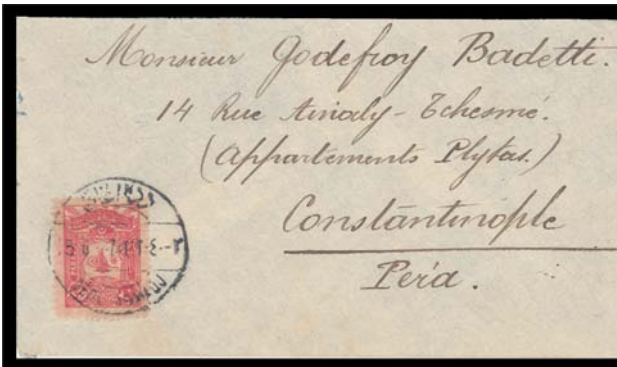 Monsieur Godefroy Badetti.
14 Rue Ainaly-Tchesmé.
(Appartements Plytas.)
Constantinople
Pera.